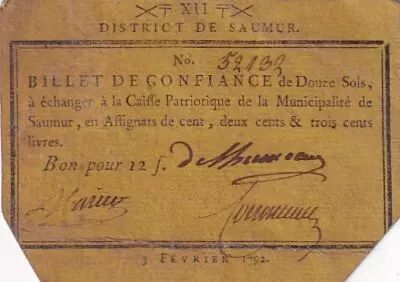 XII
DISTRICT DE SAUMUR.
No. 52139
BILLET DE CONFIANCE de Douze Sols,
à échanger à la Caisse Patriotique de la Municipalité de
Saumur, en Assignats de cent, deux cents & trois cents
livres.
Bon pour 12 ſ.
3 FÉVRIER 1792.